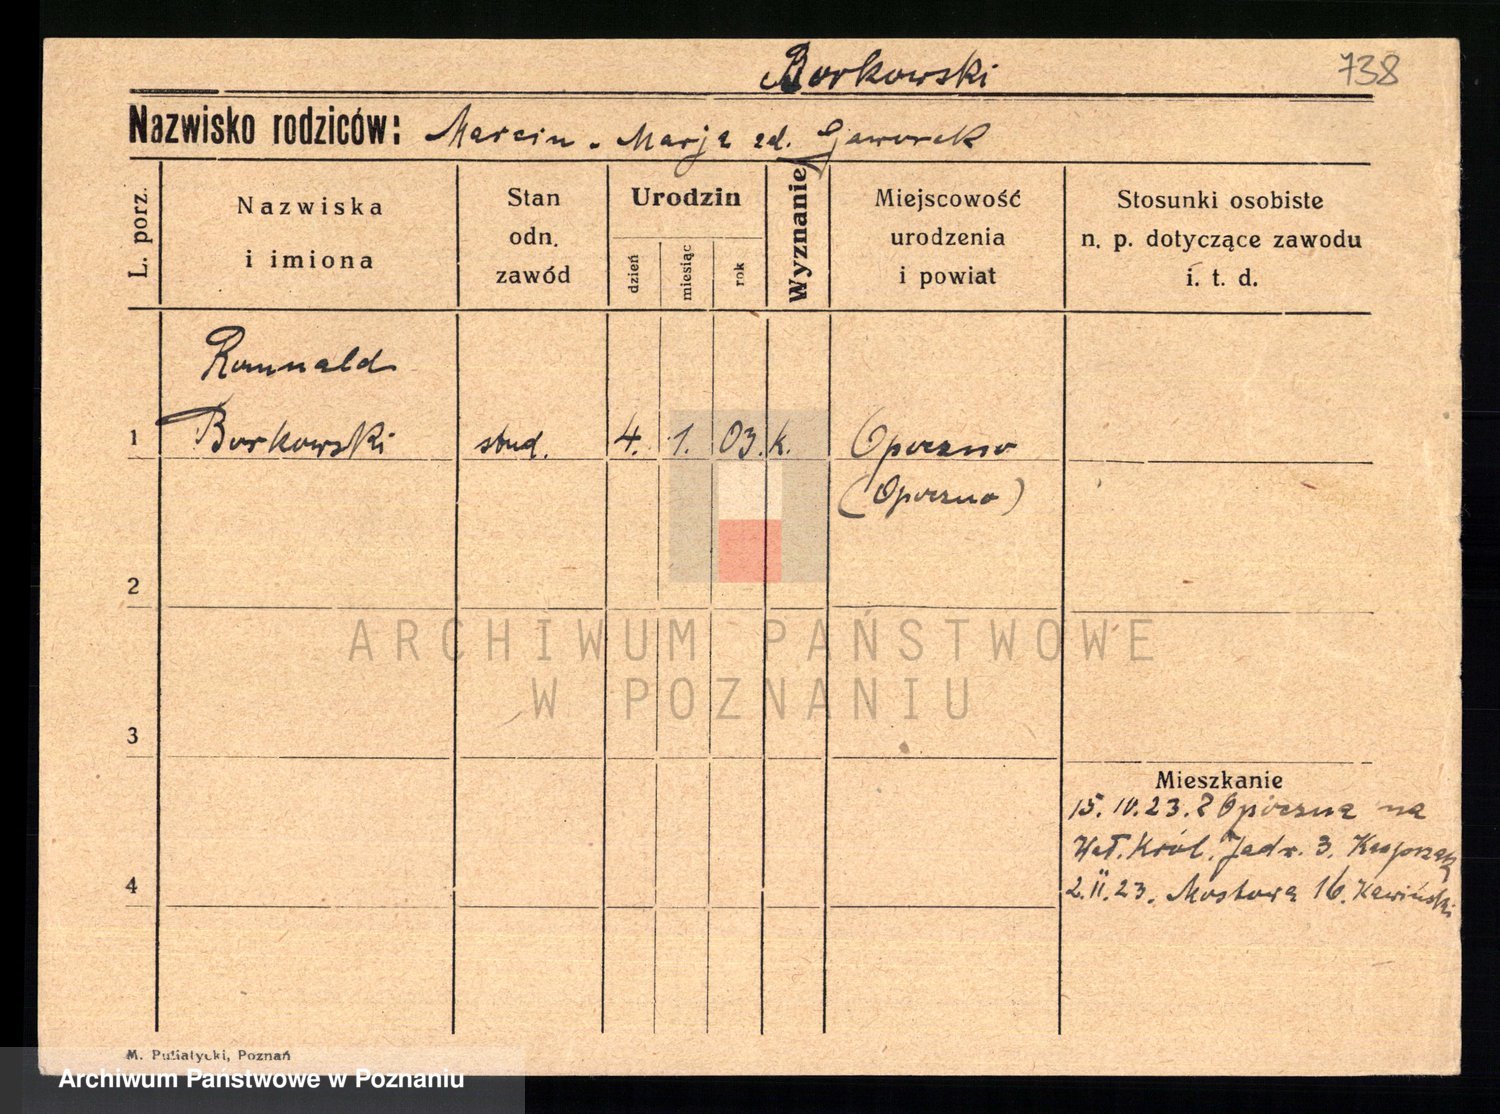 Borkowski
738
Nazwisko rodziców: Marcin. Marja zd. Gaworek
L. porz.
Nazwiska
i imiona
Stan
odn.
zawód
Urodzin
dzień
miesiąc
rok
Wyznanie
Miejscowość
urodzenia
i powiat
Stosunki osobiste
n. p. dotyczące zawodu
i. t. d.
Romuald
1 Borkowski stud. 4. 1. 03. k. Opoczno
(Opoczno)
2
ARCHIWUM PAŃSTWOWE
W POZNANIU
3
Mieszkanie
15. IV. 23. z Opoczna na
Wał. Król. Jadw. 3.
4
2. II. 23. Mostowa 16. Kawiński
M. Putiatycki, Poznań
Archiwum Państwowe w Poznaniu